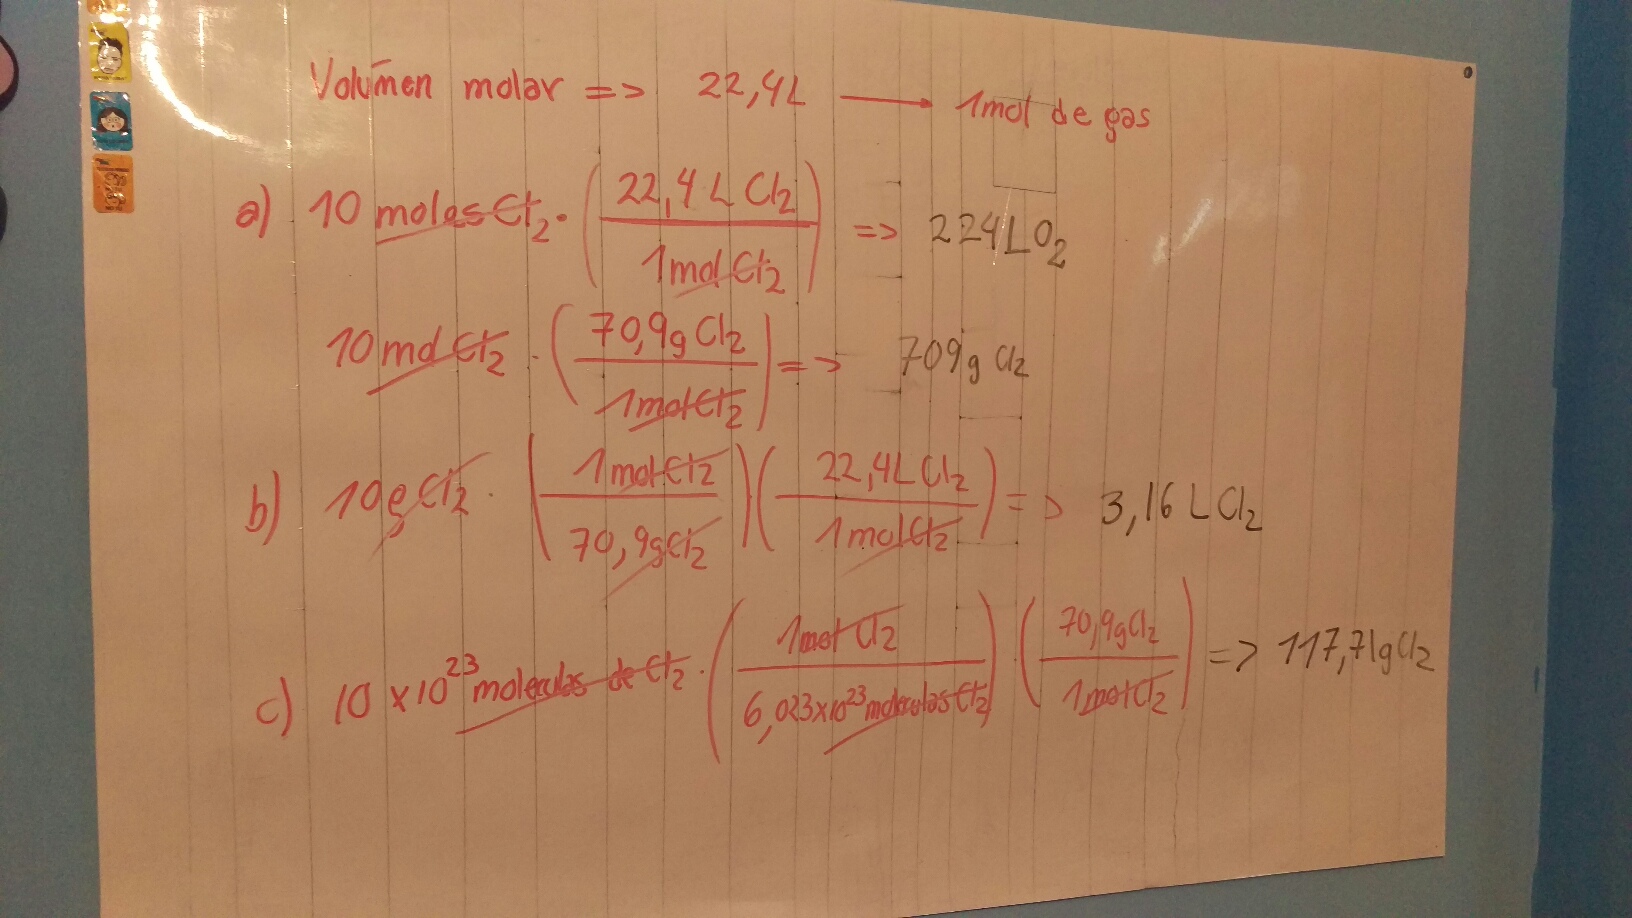 Volúmen molar => 22,4L → 1mol de gas
a) 10 moles Cl₂ · (22,4 L Cl₂ / 1mol Cl₂) => 224L O₂
10mol Cl₂ · (70,9g Cl₂ / 1molCl₂) => 709g Cl₂
b) 10g Cl₂ · (1molCl₂ / 70,9gCl₂)(22,4L Cl₂ / 1molCl₂) => 3,16 L Cl₂
c) 10 x 10²³ moleculas de Cl₂ · (1mol Cl₂ / 6,023x10²³ moleculas Cl₂) · (70,9gCl₂ / 1molCl₂) => 117,71gCl₂